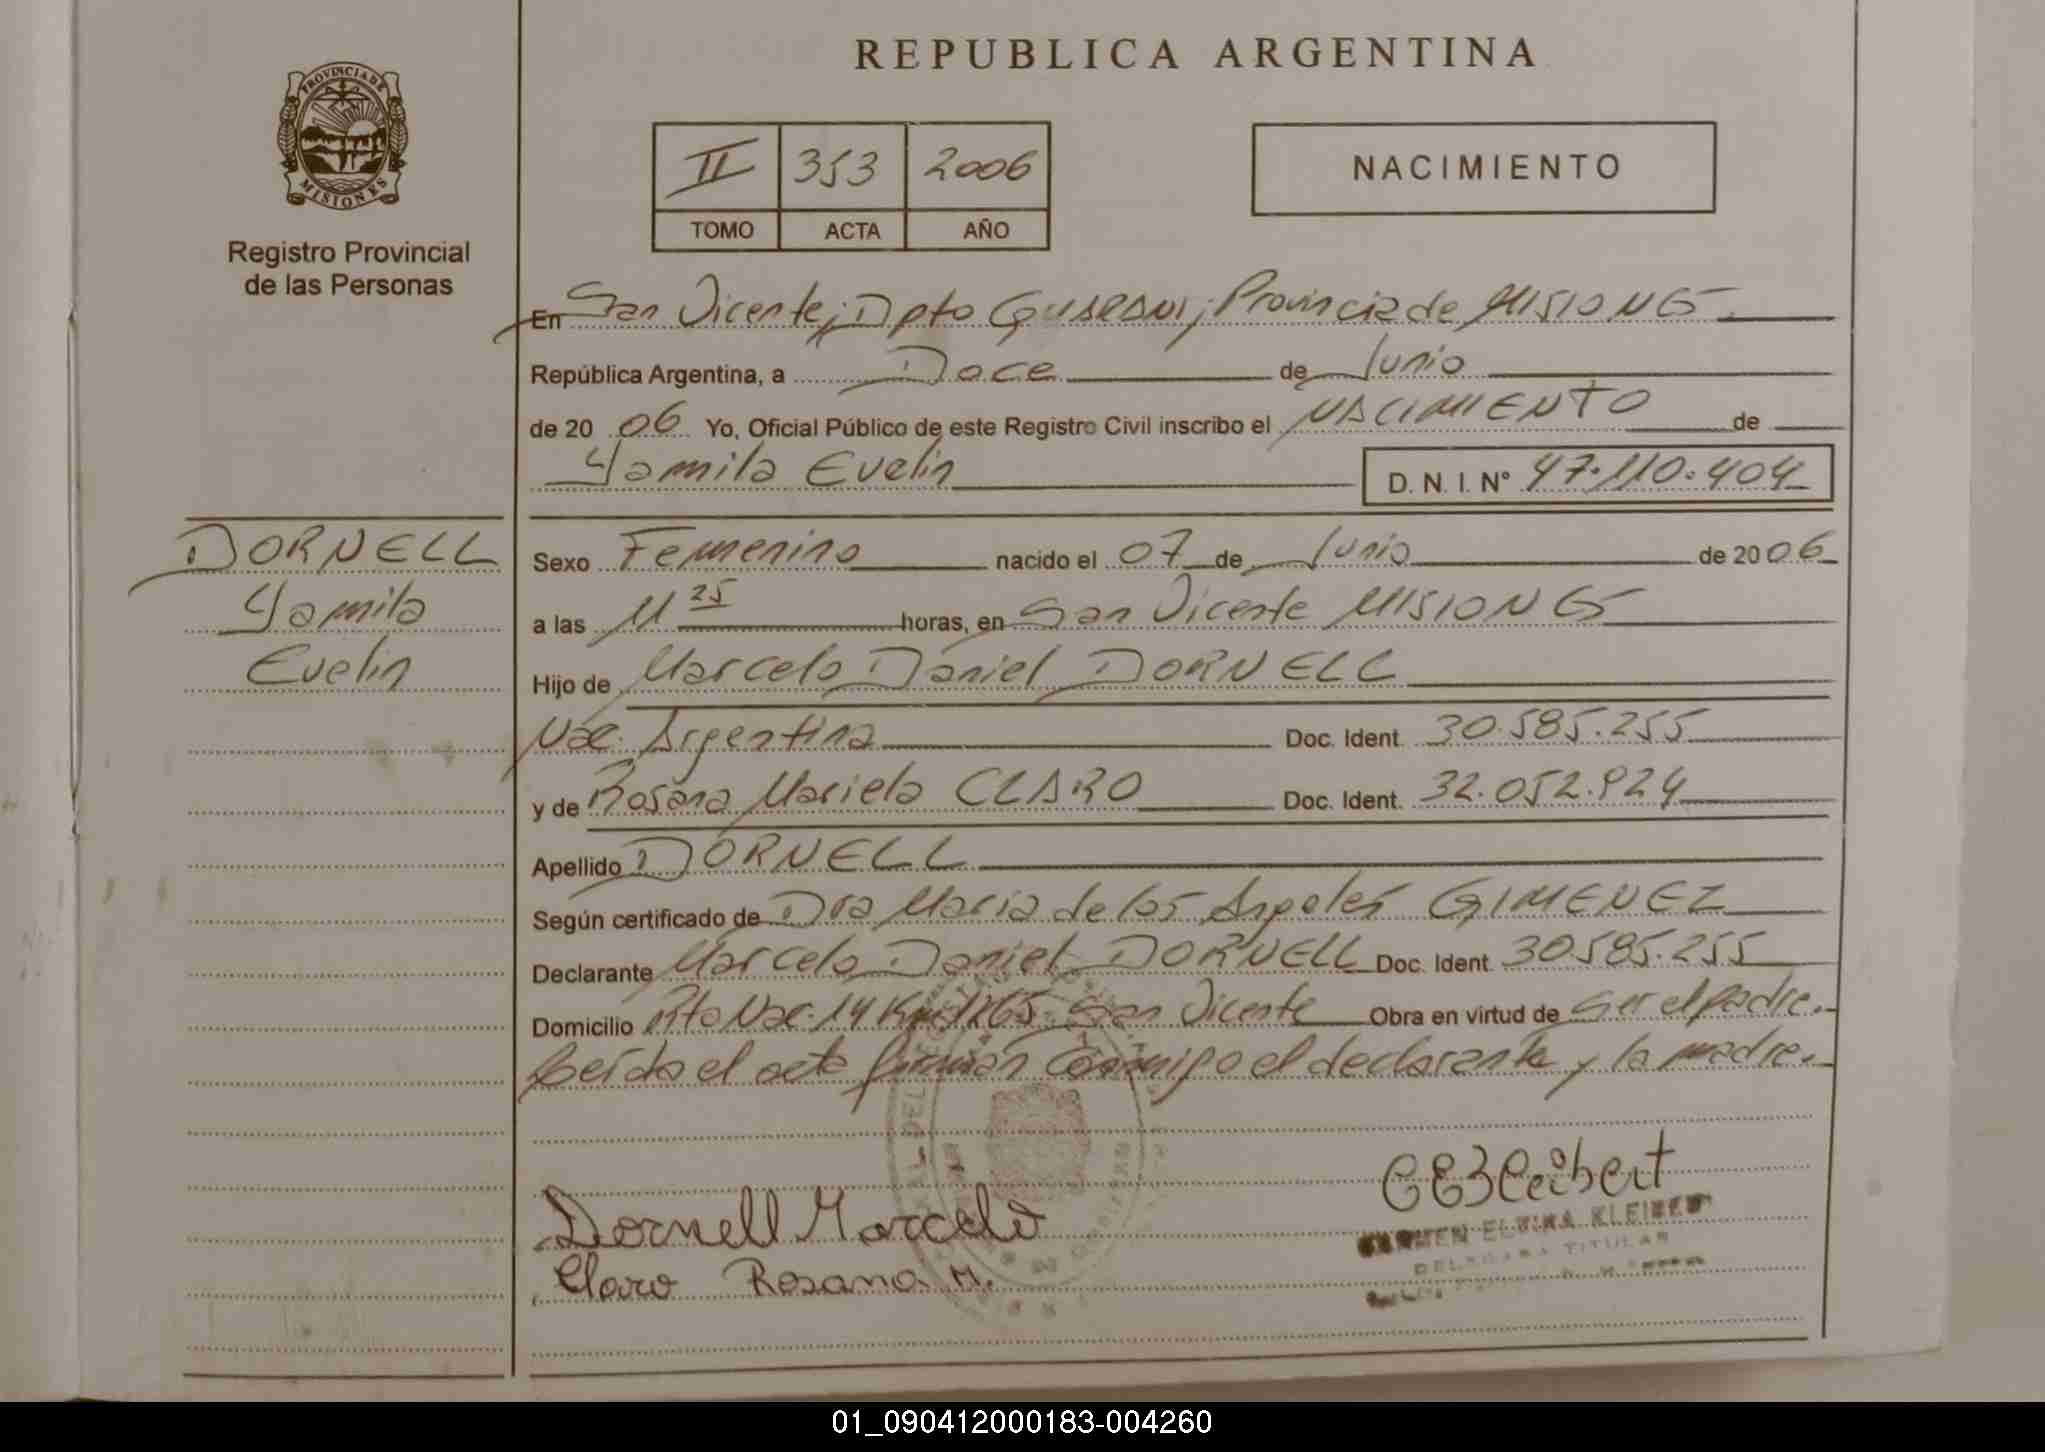 REPUBLICA ARGENTINA
PROVINCIA DE
MISIONES
Registro Provincial
de las Personas
II 353 2006
TOMO ACTA AÑO
NACIMIENTO
En San Vicente, Dpto GUARANI, Provincia de MISIONES.
República Argentina, a Doce de Junio
de 2006 Yo, Oficial Público de este Registro Civil inscribo el NACIMIENTO de
Yamila Evelin D. N. I. N° 47.110.404
DORNELL
Yamila
Evelin
Sexo Femenino nacido el 07 de Junio de 2006
a las 11 25 horas, en San Vicente MISIONES
Hijo de Marcelo Daniel DORNELL
Nac. Argentina Doc. Ident. 30.585.255
y de Rosana Mariela CLARO Doc. Ident. 32.052.924
Apellido DORNELL
Según certificado de Dra Maria de los Angeles GIMENEZ
Declarante Marcelo Daniel DORNELL Doc. Ident. 30.585.255
Domicilio Rta Nac. 14 Km 1165 San Vicente Obra en virtud de Ser el padre.
Leída el acta firman conmigo el declarante y la madre.
Dornell Marcelo
Claro Rosana M.
TITULAR
01_090412000183-004260